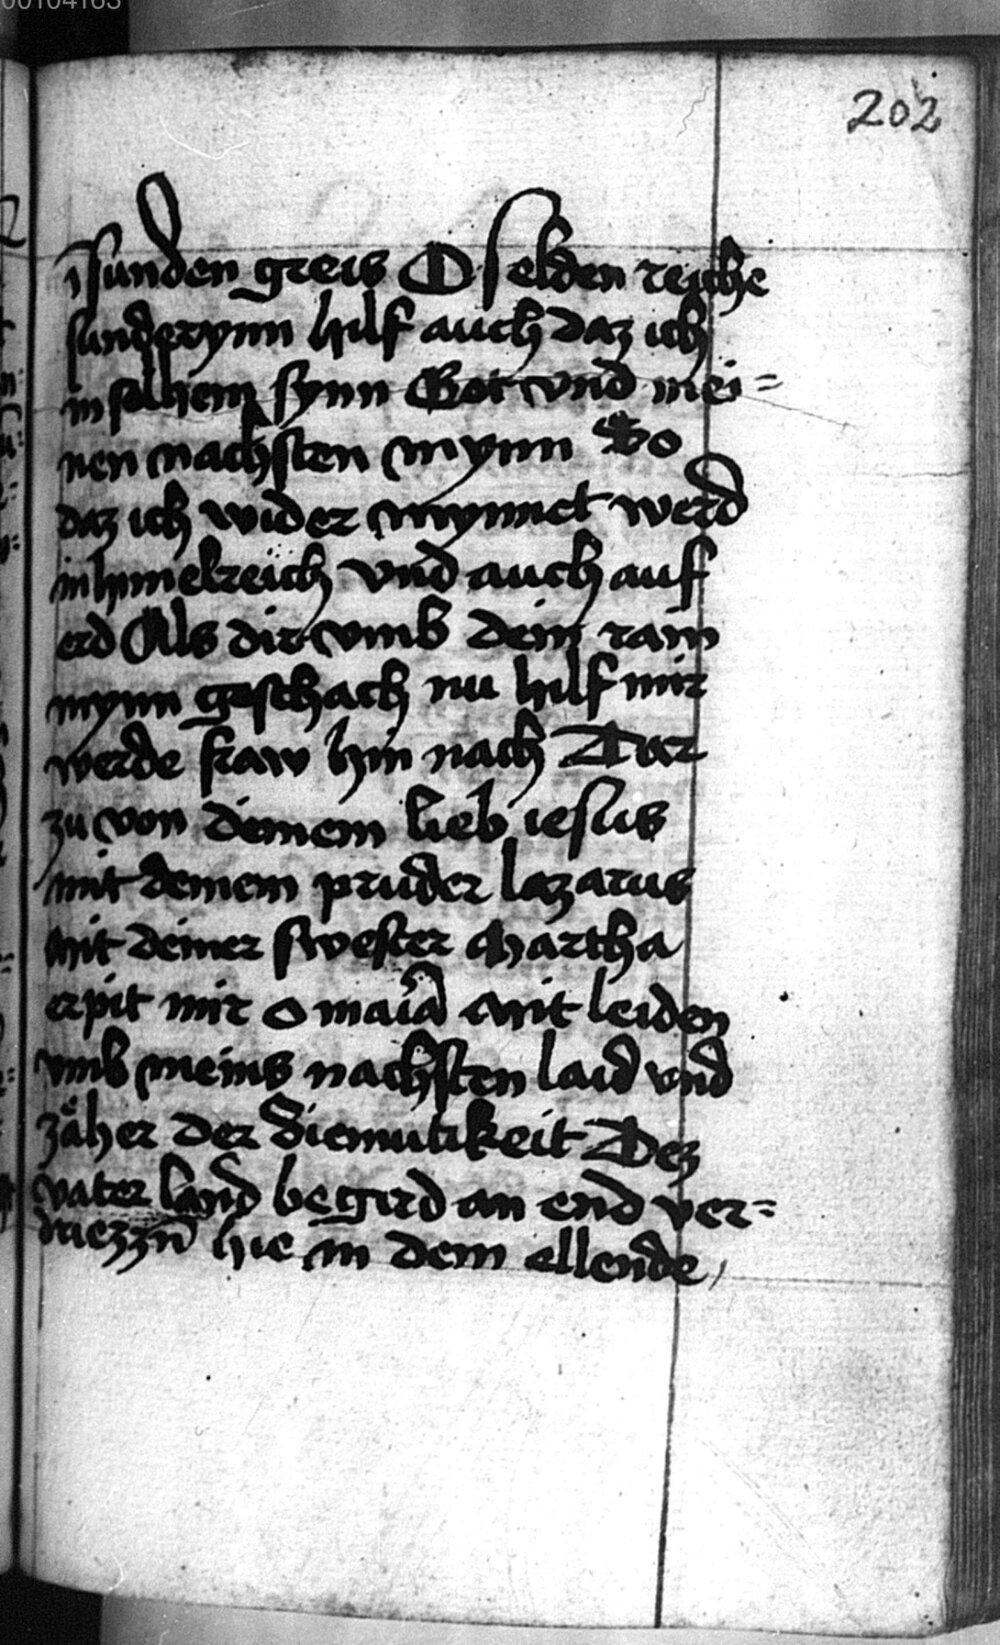 00104163
202
ī sunden greis O selden reiche
sunderynn hilf auch daz ich
in solhem synn Got vnd mei=
nen nachsten mynn So
daz ich wider mynnet werd
in himelreich vnd auch auf
erd Als dir vmb dein rain
mynn geschach nu hilf mir
werde fraw hin nach Dar
zu von deinem lieb iesus
mit deinem pruder lazarus
mit deiner swester Martha
erpit mir o maria mit leiden
vmb meins nachsten laid vnd
zäher der diemutikeit Dez
vater land begird an end ver=
driezzn̄ hie in dem ellende